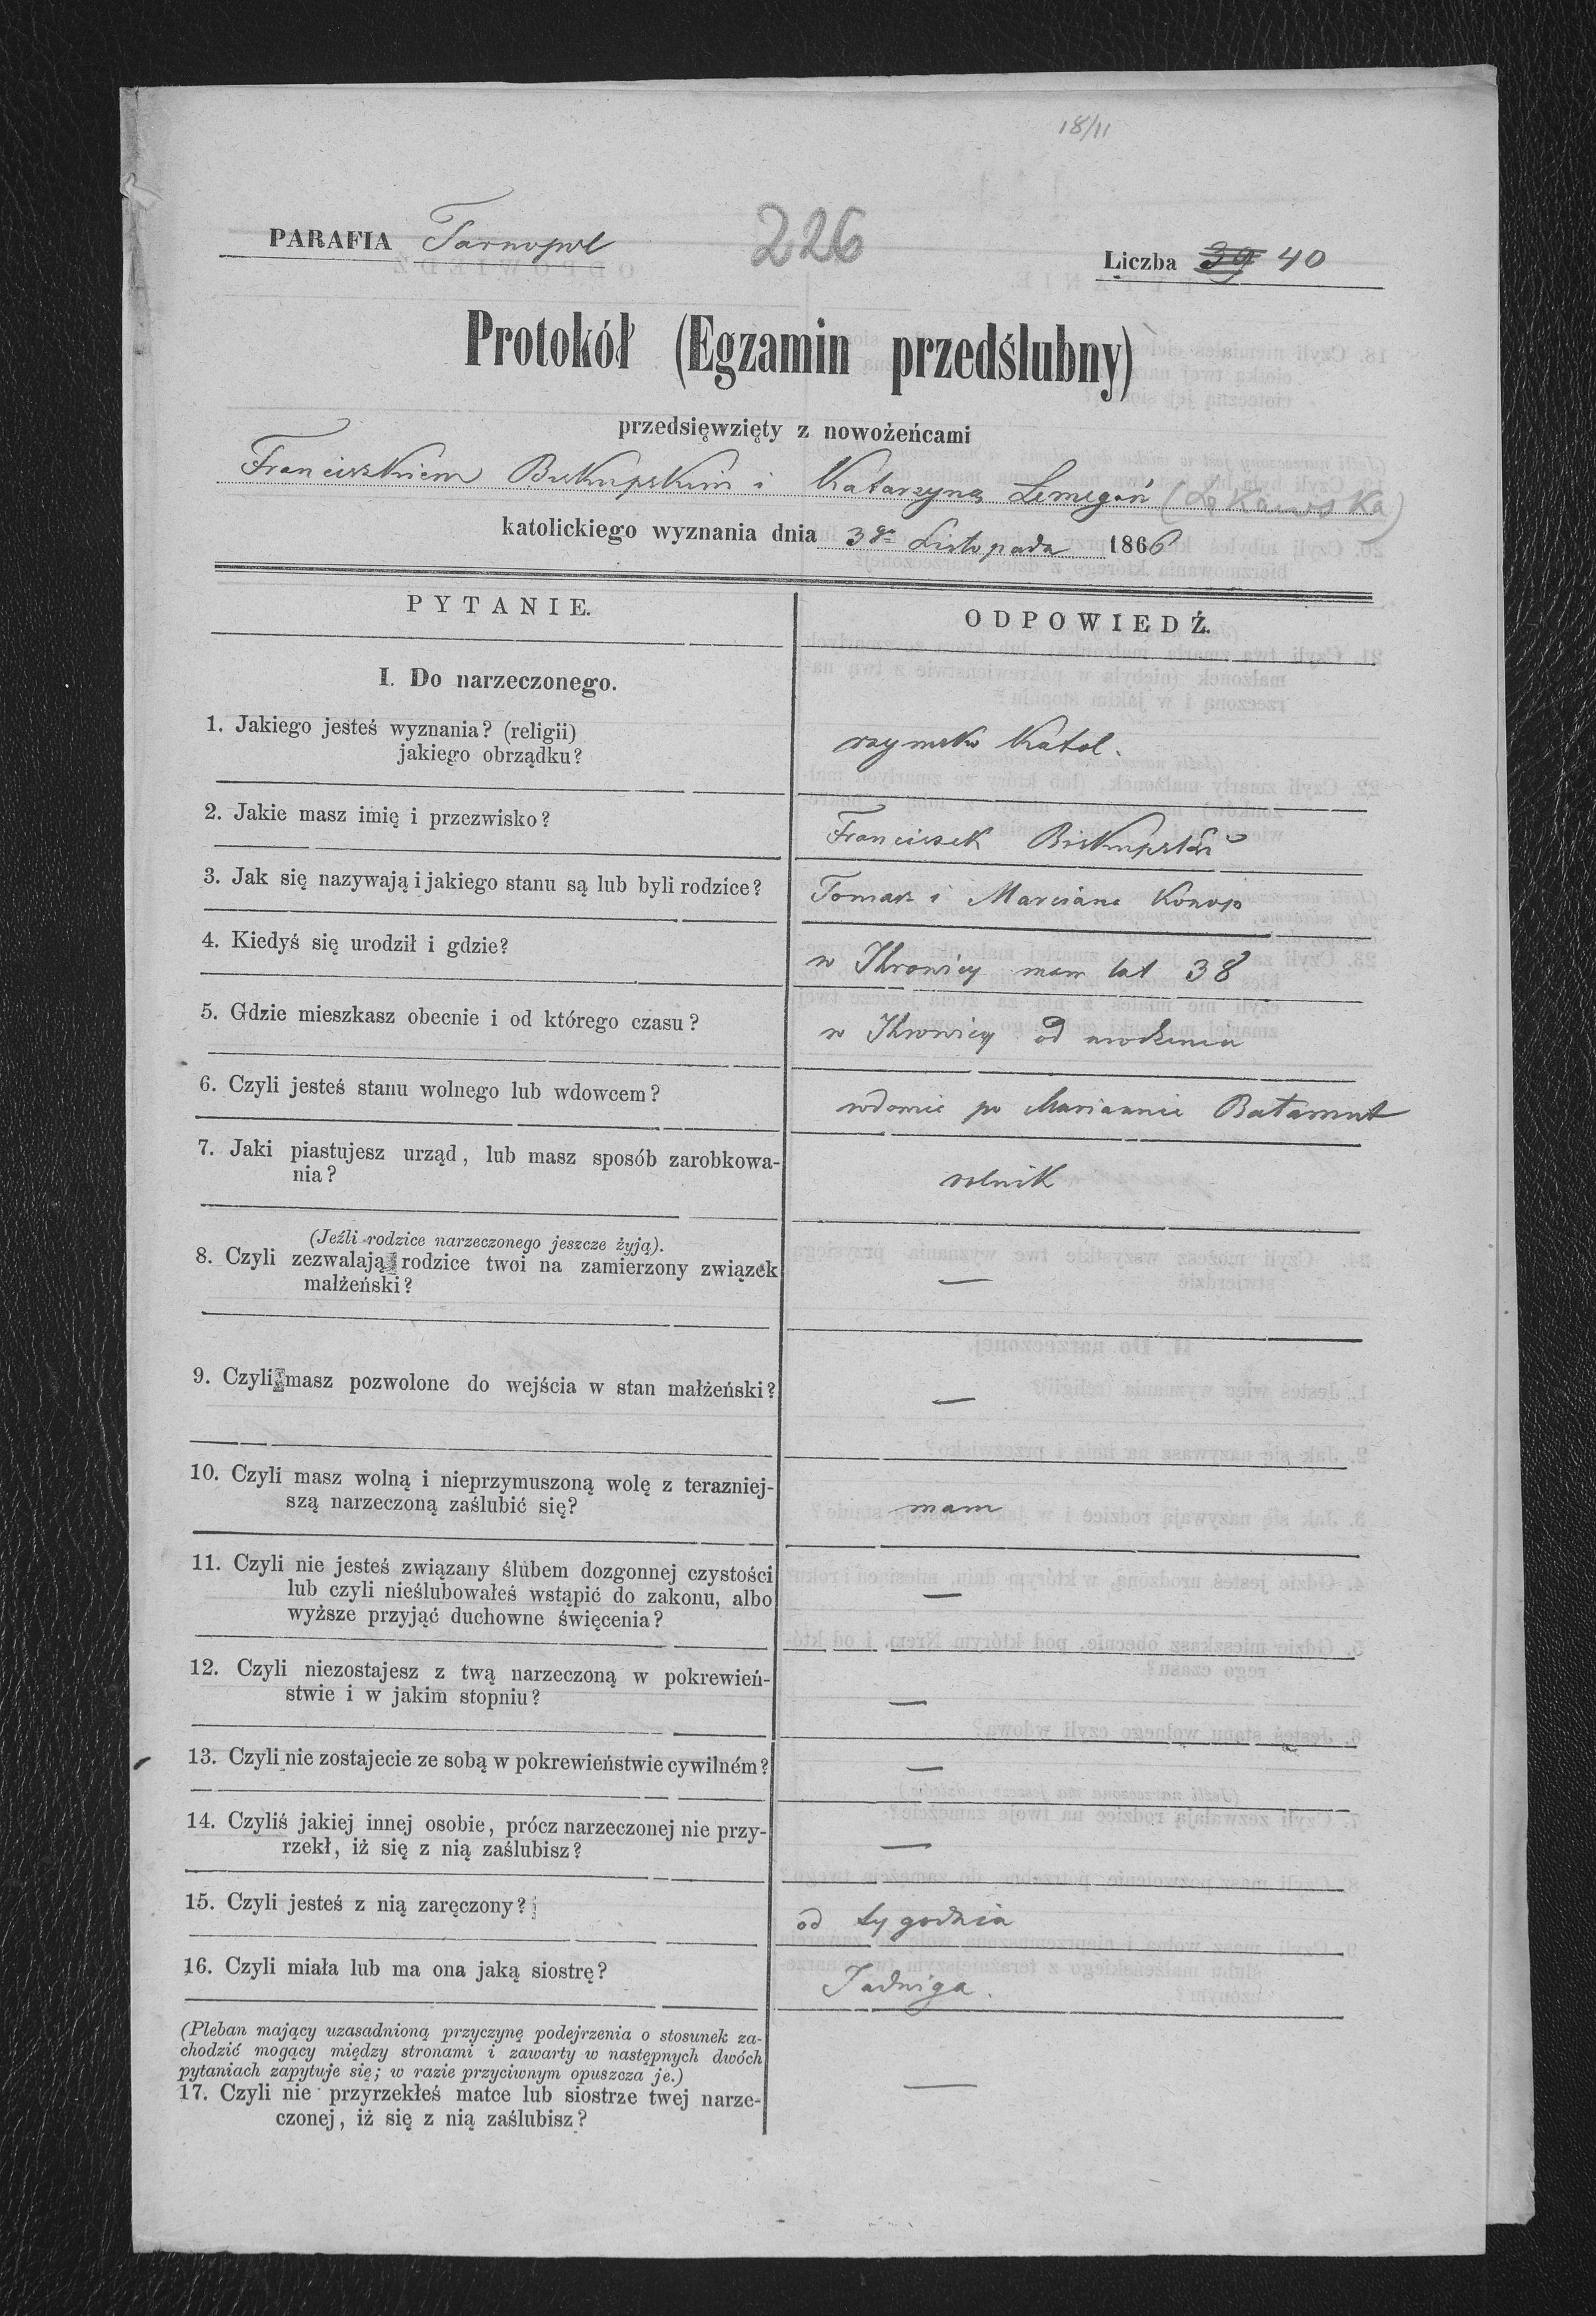 18/11
PARAFIA Tarnopol
226
Liczba 39 40
Protokół (Egzamin przedślubny)
przedsięwzięty z nowożeńcami
Franciszkiem Biskupskim i Katarzyną Lemegoń (Łąkawska)
katolickiego wyznania dnia 3go Listopada 1866
PYTANIE.
ODPOWIEDŹ.
I. Do narzeczonego.
1. Jakiego jesteś wyznania? (religii)
jakiego obrządku?
rzymsko Katol.
2. Jakie masz imię i przezwisko?
Franciszek Biskupski
3. Jak się nazywają i jakiego stanu są lub byli rodzice?
Tomasz i Marcianna Konop
4. Kiedyś się urodził i gdzie?
w Ihrowicy mam lat 38
5. Gdzie mieszkasz obecnie i od którego czasu?
w Ihrowicy od urodzenia
6. Czyli jesteś stanu wolnego lub wdowcem?
wdowiec po Mariannie Bałamut
7. Jaki piastujesz urząd, lub masz sposób zarobkowa-
nia?
rolnik
(Jeźli rodzice narzeczonego jeszcze żyją).
8. Czyli zezwalają rodzice twoi na zamierzony związek
małżeński?
—
9. Czyli masz pozwolone do wejścia w stan małżeński?
—
10. Czyli masz wolną i nieprzymuszoną wolę z terazniej-
szą narzeczoną zaślubić się?
mam
11. Czyli nie jesteś związany ślubem dozgonnej czystości
lub czyli nieślubowałeś wstąpić do zakonu, albo
wyższe przyjąć duchowne święcenia?
—
12. Czyli niezostajesz z twą narzeczoną w pokrewień-
stwie i w jakim stopniu?
—
13. Czyli nie zostajecie ze sobą w pokrewieństwie cywilném?
—
14. Czyliś jakiej innej osobie, prócz narzeczonej nie przy-
rzekł, iż się z nią zaślubisz?
—
15. Czyli jesteś z nią zaręczony?
od tygodnia
16. Czyli miała lub ma ona jaką siostrę?
Jadwiga.
(Pleban mający uzasadnioną przyczynę podejrzenia o stosunek za-
chodzić mogący między stronami i zawarty w następnych dwóch
pytaniach zapytuje się; w razie przyciwnym opuszcza je.)
17. Czyli nie przyrzekłeś matce lub siostrze twej narze-
czonej, iż się z nią zaślubisz?
—